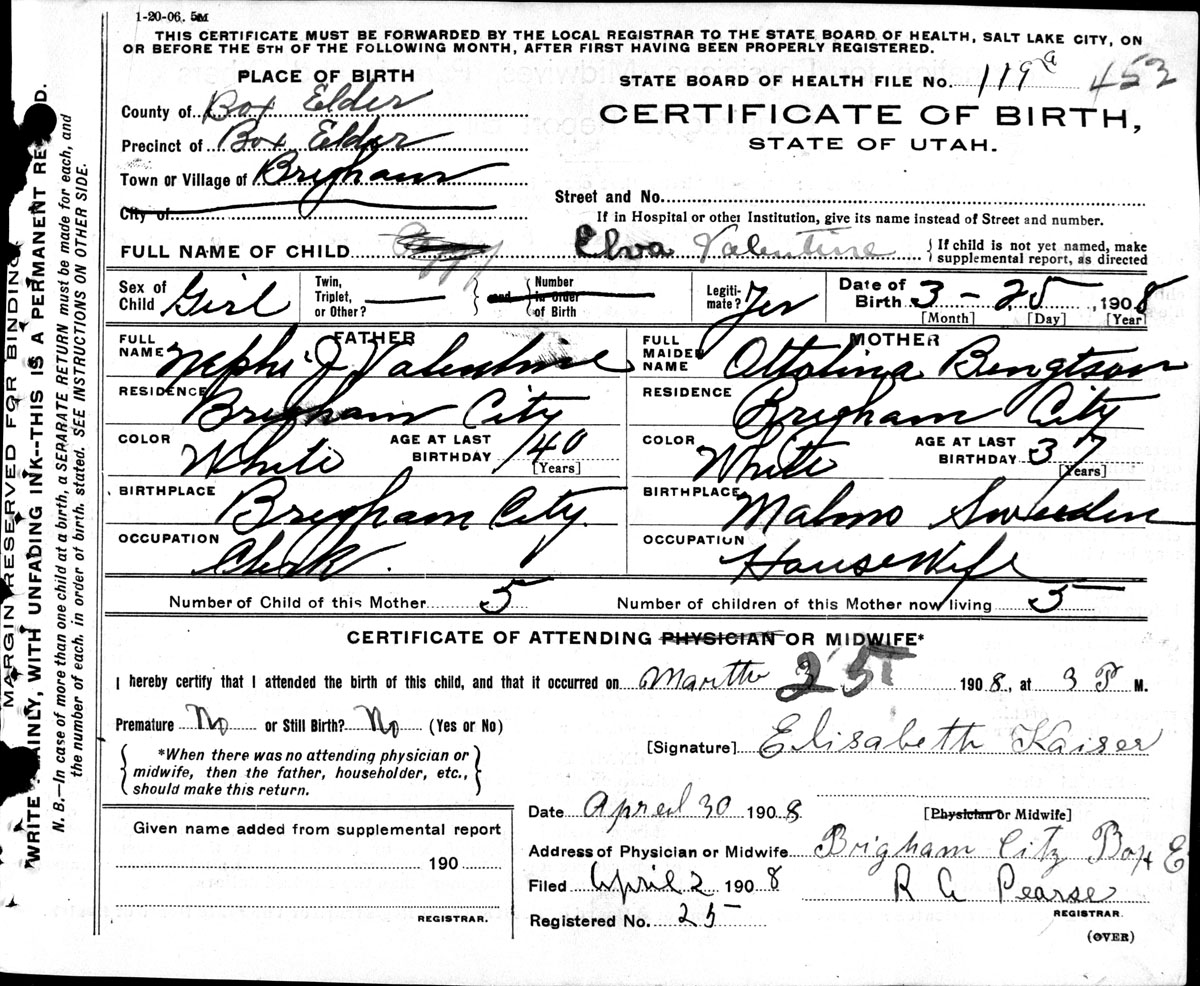 1-20-06. 5M
THIS CERTIFICATE MUST BE FORWARDED BY THE LOCAL REGISTRAR TO THE STATE BOARD OF HEALTH, SALT LAKE CITY, ON
OR BEFORE THE 5TH OF THE FOLLOWING MONTH, AFTER FIRST HAVING BEEN PROPERLY REGISTERED.
PLACE OF BIRTH
County of Box Elder
Precinct of Box Elder
Town or Village of Brigham
City of
STATE BOARD OF HEALTH FILE No. 119a 453
CERTIFICATE OF BIRTH,
STATE OF UTAH.
Street and No.
If in Hospital or other Institution, give its name instead of Street and number.
FULL NAME OF CHILD Elva Valentine
If child is not yet named, make
supplemental report, as directed
Sex of Child Girl
Twin, Triplet, or Other?
and Number in order of Birth
Legiti-mate? Yes
Date of Birth 3-25, 1908
[Month] [Day] [Year]
FATHER
FULL NAME Nephi J Valentine
RESIDENCE Brigham City
COLOR White AGE AT LAST BIRTHDAY 40 [Years]
BIRTHPLACE Brigham City
OCCUPATION Clerk.
MOTHER
FULL MAIDEN NAME Ottolina Bengtson
RESIDENCE Brigham City
COLOR White AGE AT LAST BIRTHDAY 37 [Years]
BIRTHPLACE Malmo Sweeden
OCCUPATION HouseWife
Number of Child of this Mother 5 Number of children of this Mother now living 5
CERTIFICATE OF ATTENDING PHYSICIAN OR MIDWIFE*
I hereby certify that I attended the birth of this child, and that it occurred on 25 1908, at 3 P M.
Premature No or Still Birth? No (Yes or No)
*When there was no attending physician or
midwife, then the father, householder, etc.,
should make this return.
[Signature] Elisabeth Kaiser
[Physician or Midwife]
Date April 30 1908
Address of Physician or Midwife Brigham City Box E
Filed April 2 1908 R A Pearse
REGISTRAR
Registered No. 25
(OVER)
Given name added from supplemental report
190
REGISTRAR.
MARGIN RESERVED FOR BINDING
WRITE PLAINLY, WITH UNFADING INK--THIS IS A PERMANENT
N. B.—In case of more than one child at a birth, a SEPARATE RETURN must be made for each, and
the number of each, in order of birth, stated. SEE INSTRUCTIONS ON OTHER SIDE.